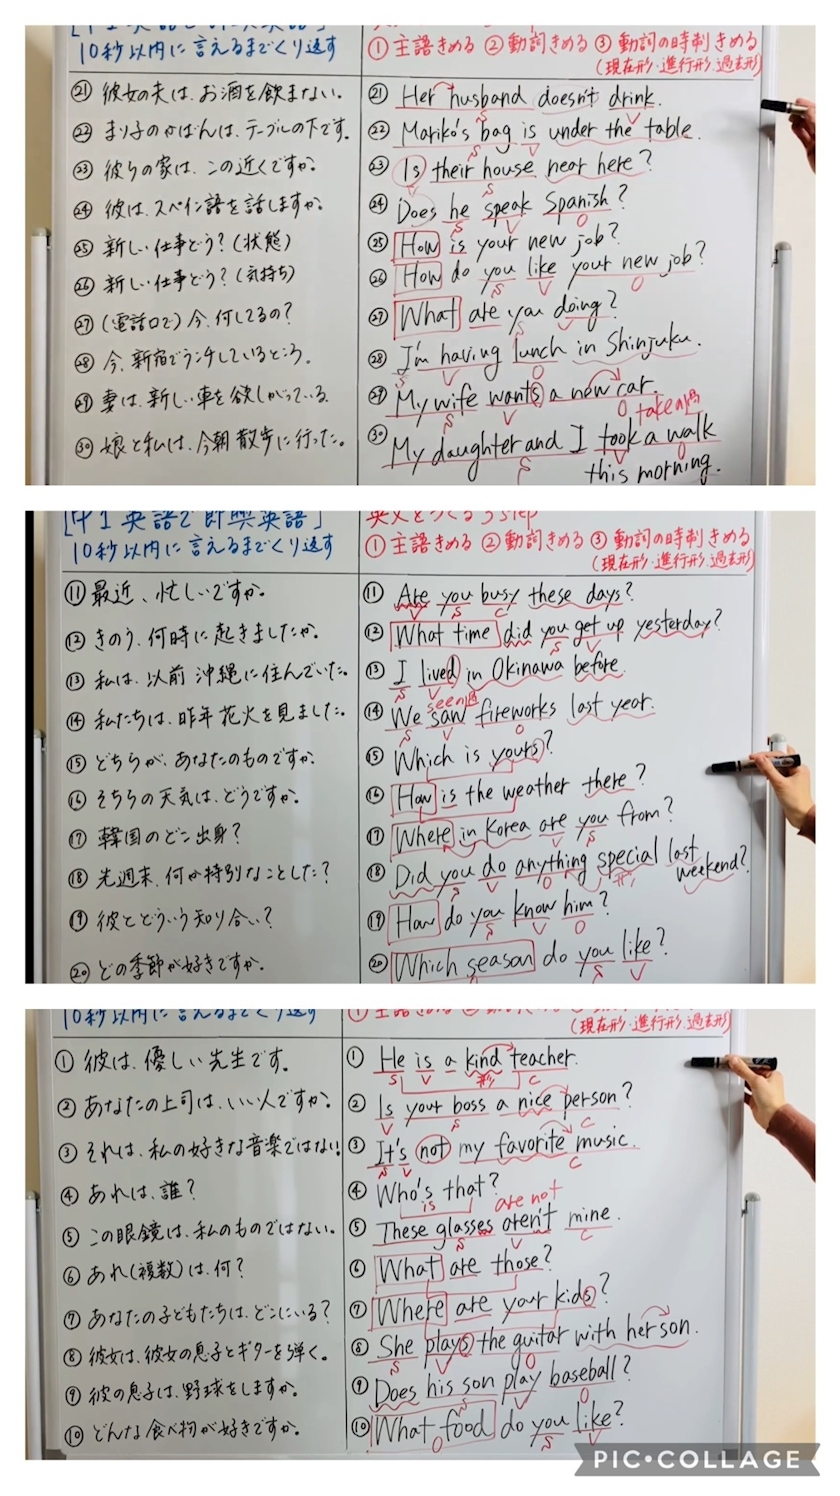 [中1英語で即興英語」
10秒以内に言えるまでくり返す
①主語きめる ②動詞きめる ③動詞の時制きめる
(現在形・進行形・過去形)
㉑ 彼女の夫は、お酒を飲まない。
㉑ Her husband doesn't drink.
㉒ まり子のかばんは、テーブルの下です。
㉒ Mariko's bag is under the table.
㉓ 彼らの家は、この近くですか。
㉓ Is their house near here?
㉔ 彼は、スペイン語を話しますか。
㉔ Does he speak Spanish?
㉕ 新しい仕事どう?(状態)
㉕ How is your new job?
㉖ 新しい仕事どう?(気持ち)
㉖ How do you like your new job?
㉗ (電話口で)今、何してるの?
㉗ What are you doing?
㉘ 今、新宿でランチしているところ。
㉘ I'm having lunch in Shinjuku.
㉙ 妻は、新しい車を欲しがっている。
㉙ My wife wants a new car.
take の過
㉚ 娘と私は、今朝散歩に行った。
㉚ My daughter and I took a walk
this morning.
[中1英語で即興英語」
10秒以内に言えるまでくり返す
英文をつくる3 step
①主語きめる ②動詞きめる ③動詞の時制きめる
(現在形・進行形・過去形)
⑪ 最近、忙しいですか。
⑪ Are you busy these days?
⑫ きのう、何時に起きましたか。
⑫ What time did you get up yesterday?
⑬ 私は、以前沖縄に住んでいた。
⑬ I lived in Okinawa before.
seeの過
⑭ 私たちは、昨年花火を見ました。
⑭ We saw fireworks last year.
⑮ どちらが、あなたのものですか。
⑮ Which is yours?
⑯ そちらの天気は、どうですか。
⑯ How is the weather there?
⑰ 韓国のどこ出身?
⑰ Where in Korea are you from?
⑱ 先週末、何か特別なことした?
⑱ Did you do anything special last
weekend?
⑲ 彼とどういう知り合い?
⑲ How do you know him?
⑳ どの季節が好きですか。
⑳ Which season do you like?
10秒以内に言えるまでくり返す
(現在形・進行形・過去形)
① 彼は、優しい先生です。
① He is a kind teacher.
② あなたの上司は、いい人ですか。
② Is your boss a nice person?
③ それは、私の好きな音楽ではない!
③ It's not my favorite music.
④ あれは、誰?
④ Who's that?
is
are not
⑤ この眼鏡は、私のものではない。
⑤ These glasses aren't mine.
⑥ あれ(複数)は、何?
⑥ What are those?
⑦ あなたの子どもたちは、どこにいる?
⑦ Where are your kids?
⑧ 彼女は、彼女の息子とギターを弾く。
⑧ She plays the guitar with her son.
⑨ 彼の息子は、野球をしますか。
⑨ Does his son play baseball?
⑩ どんな食べ物が好きですか。
⑩ What food do you like?
PIC•COLLAGE